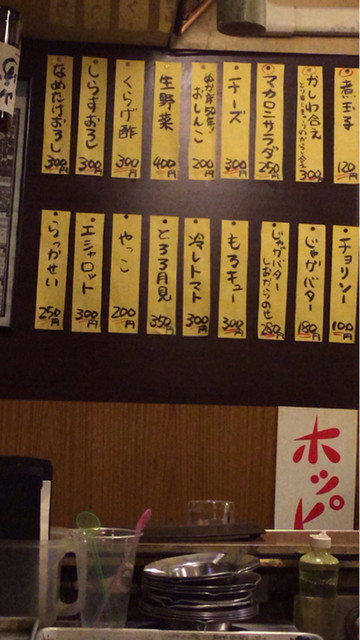 煮玉子 120円
かしわ合え 300円
マカロニサラダ 250円
チーズ 300円
ぬか床50年!
おしんこ 200円
生野菜 400円
くらげ酢 300円
しらすおろし 300円
なめたけおろし 300円
チョリソー 100円
じゃがバター 180円
じゃがバター
しおからのせ 280円
もろキュー 300円
冷しトマト 300円
とろろ月見 350円
やっこ 200円
エシャロット 300円
らっかせい 250円
ホッピー